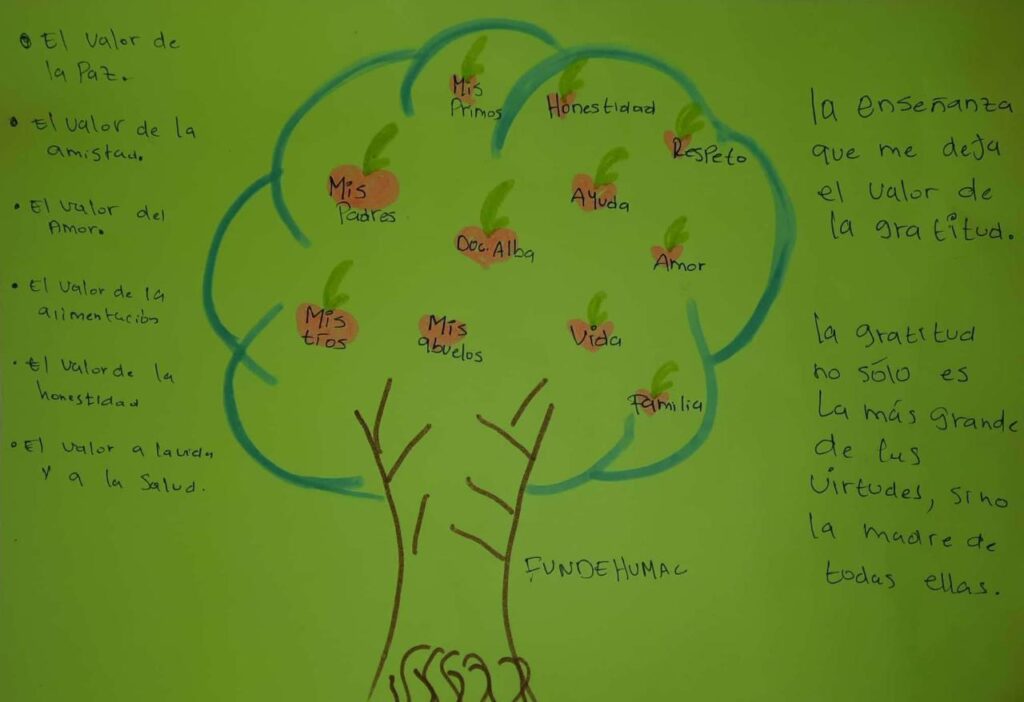 El valor de
la Paz.
El valor de la
amistad.
El valor del
Amor.
El valor de la
alimentación
El valor de la
honestidad
El valor a la vida
y a la Salud.
Mis
Primos
Honestidad
Respeto
Mis
Padres
Ayuda
Doc. Alba
Amor
Mis
tíos
Mis
abuelos
Vida
Familia
FUNDEHUMAC
la enseñanza
que me deja
el valor de
la gratitud.
la gratitud
no sólo es
La más grande
de las
virtudes, sino
la madre de
todas ellas.